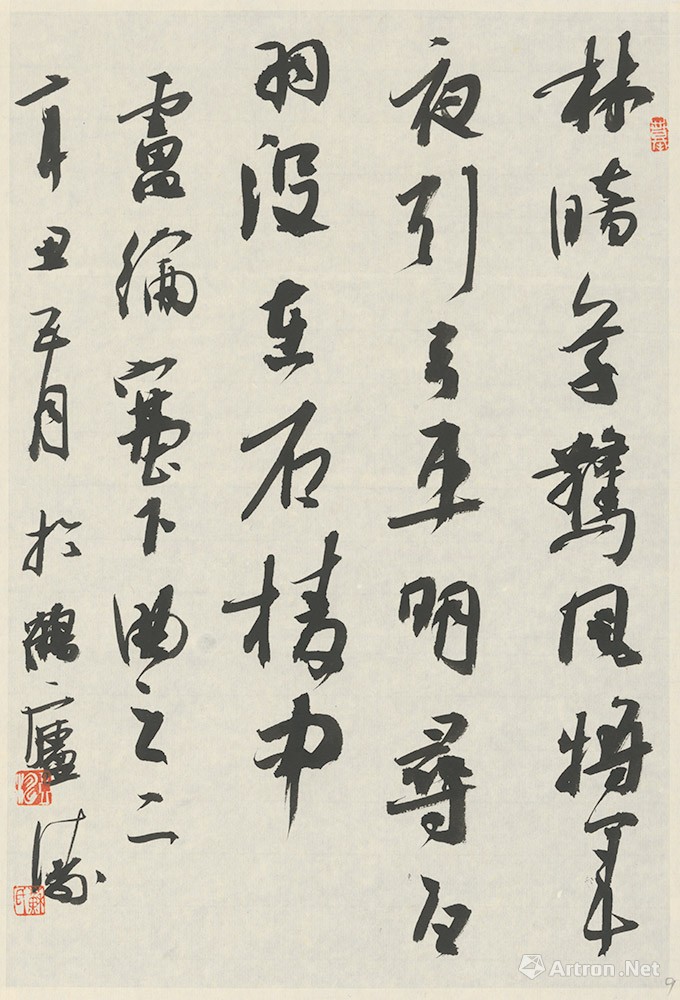 林暗草驚風將軍
夜引弓平明尋白
羽沒在石棱中
盧綸塞下曲之二
辛丑五月於鶴廬
Artron.Net
9